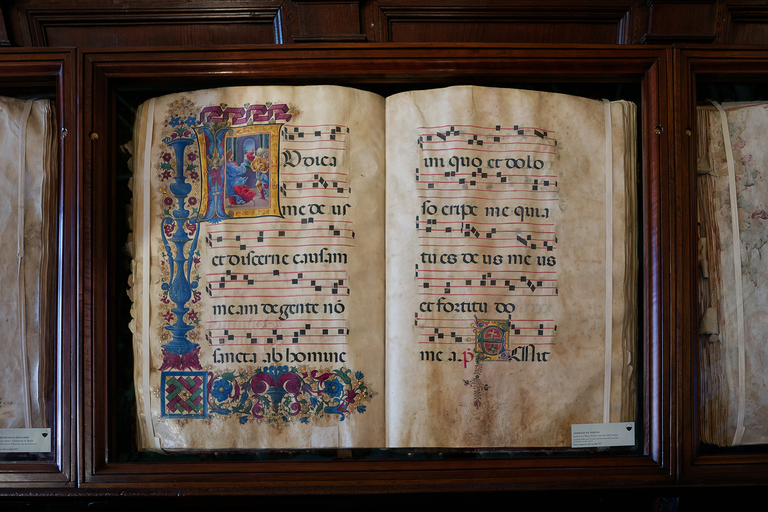 Vdica
me de us
et discerne causam
meam de gente nō
sancta ab homine
ini quo et dolo
so eripe me quia
tu es de us me us
et fortitu do
me a. p̄ Emit